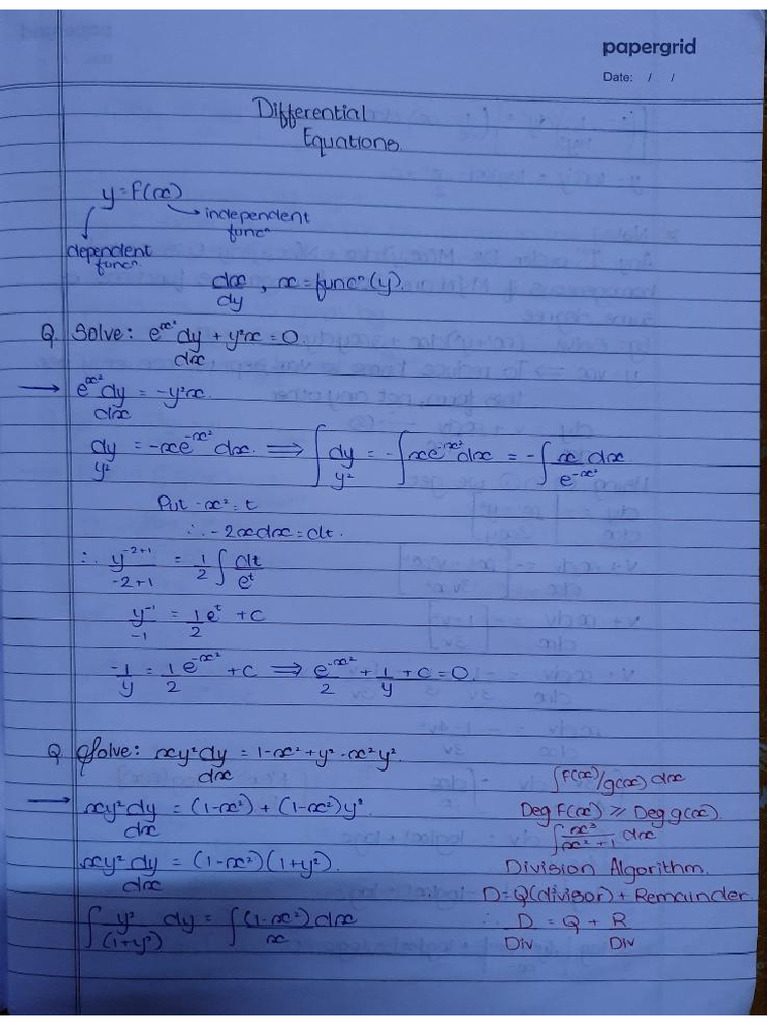 papergrid
Date: / /
Differential
Equations
y = f(x)
independent
funcⁿ
dependent
funcⁿ
dx/dy , x = funcⁿ(y).
Q. Solve: e^x² dy/dx + y²x = 0.
→ e^x² dy/dx = -y²x.
dy/y² = -xe^-x² dx. ⟹ ∫ dy/y² = -∫ xe^-x² dx = -∫ x/e^-x² dx
Put -x² = t
∴ -2xdx = dt.
∴ y^-2+1/-2+1 = 1/2 ∫ dt/e^t
y^-1/-1 = 1/2 e^t + c
-1/y = 1/2 e^-x² + c ⟹ e^-x²/2 + 1/y + c = 0.
Q Solve: xy² dy/dx = 1-x² + y² - x²y².
→ xy² dy/dx = (1-x²) + (1-x²)y²
xy² dy/dx = (1-x²)(1+y²).
∫ y²/(1+y²) dy = ∫ (1-x²)/x dx
∫ f(x)/g(x) dx
Deg f(x) ⩾ Deg g(x).
∫ x³/x²+1 dx
Division Algorithm.
D = Q(divisor) + Remainder
∴ D/Div = Q + R/Div